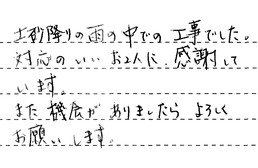 土砂降りの雨の中での工事でした。
対応のいいお2人に感謝して
います。
また機会がありましたらよろしく
お願いします。